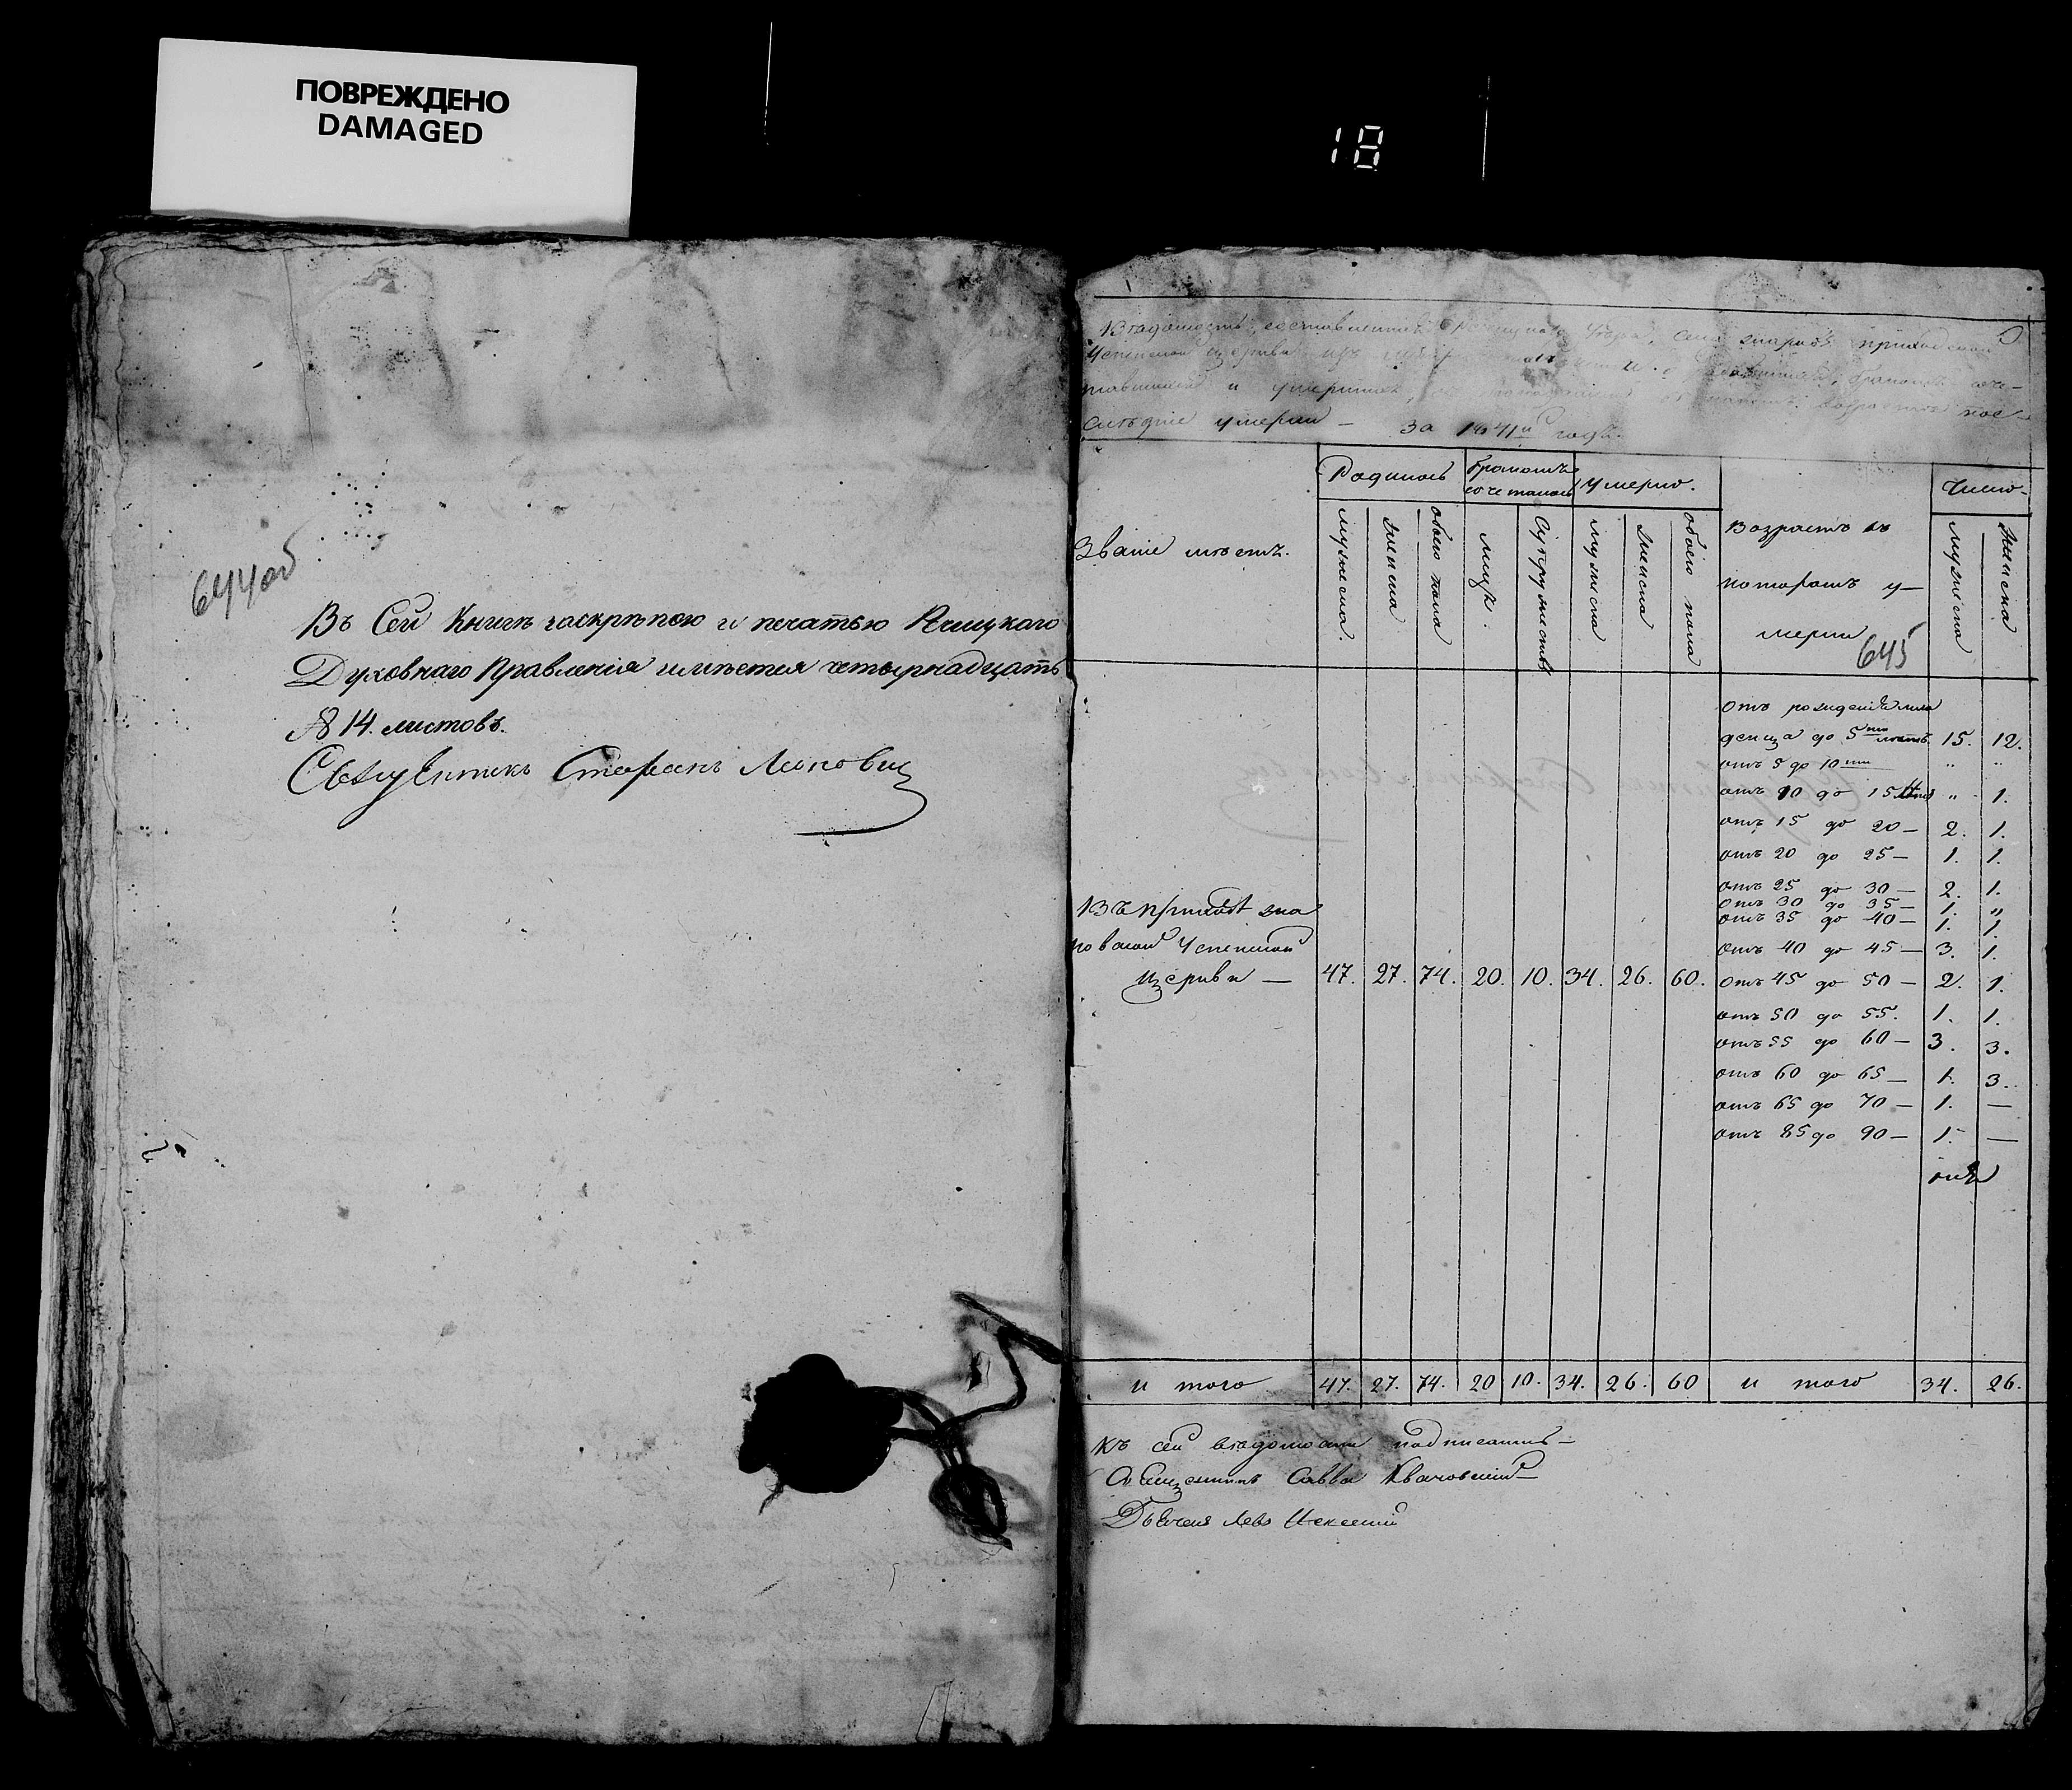 ПОВРЕЖДЕНО
DAMAGED
18
644 об
Въ Сей Книгѣ за скрѣпою и печатью
Духовнаго Правленія имѣется четырнадцать
№ 14. листовъ.
Священникъ Стефанъ
Вѣдомость, составленная уѣзда, села приходской
Успенской церкви изъ о бракомъ соче-
тавшихся и умершихъ, пос-
лѣдніе умерли — за 1841й годъ.
Званіе мѣстъ.
Родилось
бракомъ сочеталось
Умерло.
Возрастъ въ которомъ у-мерли
Число
мужеска. женска обоего пола лицъ. Супружествъ мужеска женска обоего пола мужеска женска
645
Отъ рожденія мла
денца до 5ти лѣтъ. 15. 12.
отъ 5 до 10ти „ „
отъ 10 до 15ти „ 1.
отъ 15 до 20 — 2. 1.
отъ 20 до 25 — 1. 1.
отъ 25 до 30 — 2. 1.
отъ 30 до 35 — 1. „
отъ 35 до 40 — 1. 1.
отъ 40 до 45 — 3. 1.
отъ 45 до 50 — 2. 1.
отъ 50 до 55. 1. 1.
отъ 55 до 60 — 3. 3.
отъ 60 до 65 — 1. 3.
отъ 65 до 70 — 1. —
отъ 85 до 90 — 1. —
Въ приходѣ
Успенской
церкви — 47. 27. 74. 20. 10. 34. 26. 60.
и того 47. 27. 74. 20 10. 34. 26. 60 и того 34. 26.
Къ сей вѣдомости подписались —
Священникъ Савва
Дьячекъ Левъ